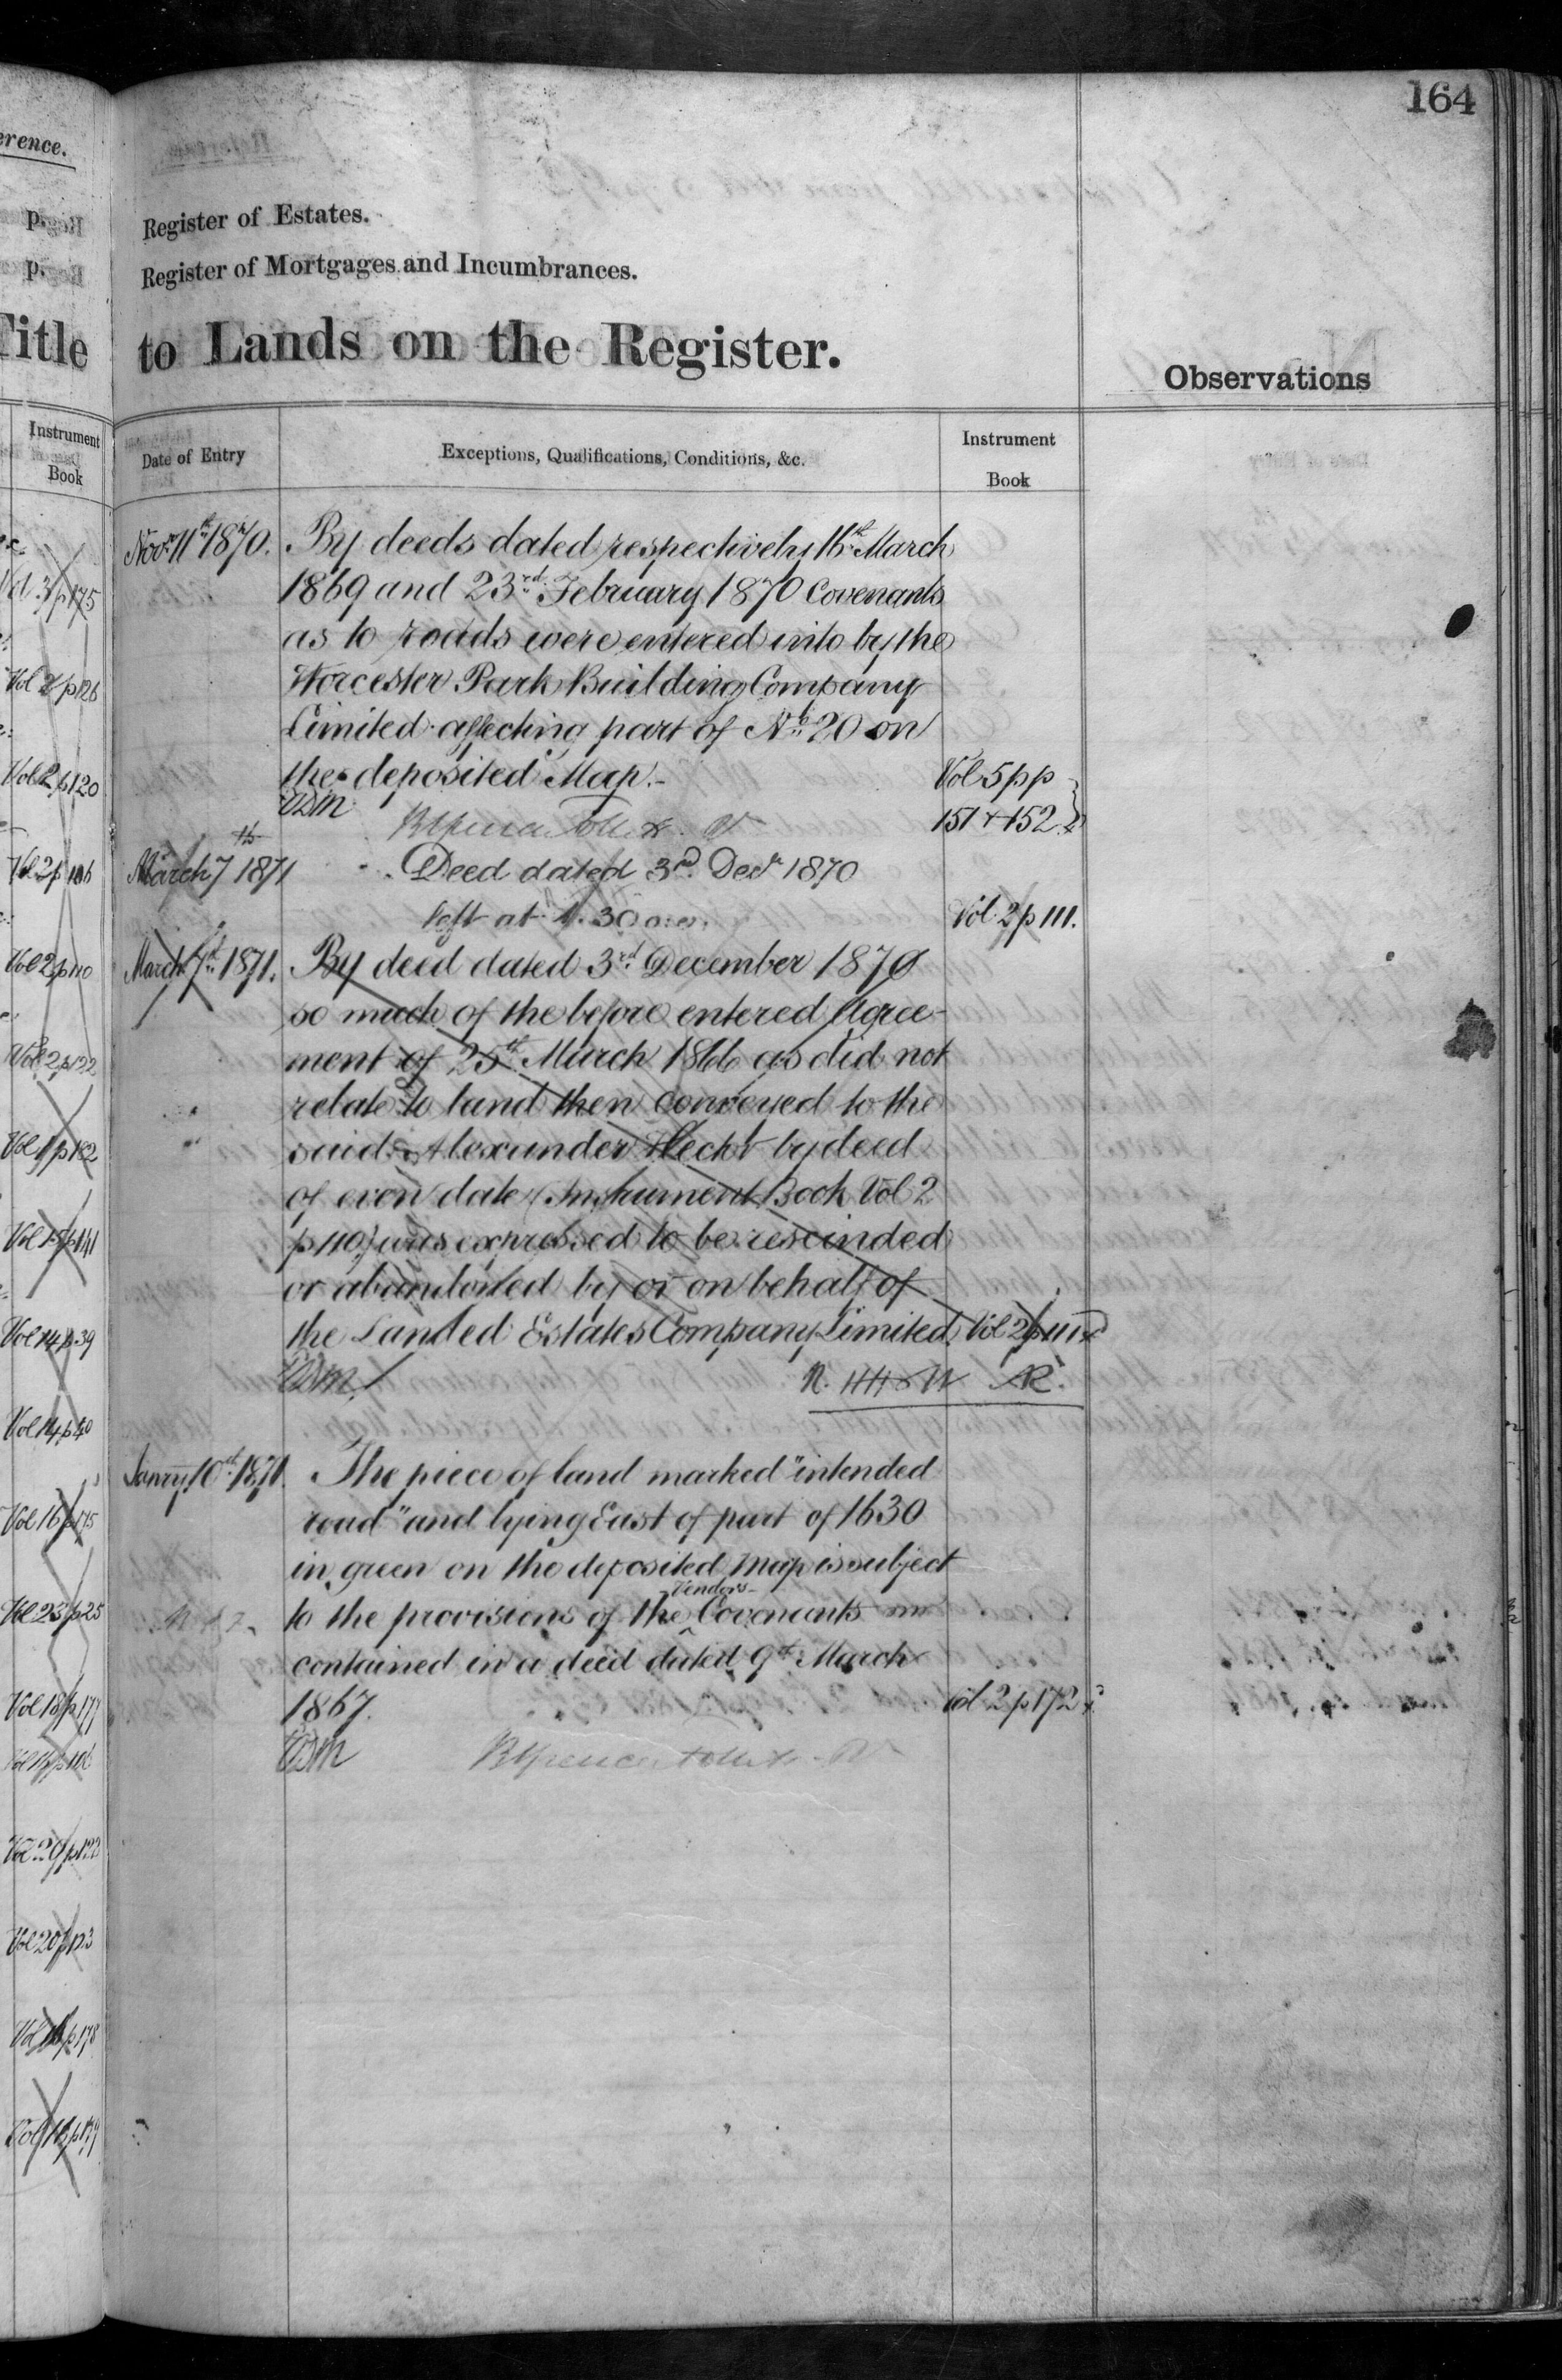 164
Register of Estates.
Register of Mortgages and Incumbrances.
to Lands on the Register.
Observations
Date of Entry
Exceptions, Qualifications, Conditions, &c.
Instrument
Book
Novr. 11th 1870. By deeds dated respectively 16th March
1869 and 23rd February 1870 Covenants
as to roads were entered into by the
Worcester Park Building Company
Limited affecting part of No. 20 on
the deposited Map. Vol 5 pp
151 + 152
March 7th 1871 Deed dated 3rd Decr 1870
left at 30 Vol. 2 p 111.
March 7th 1871. By deed dated 3rd December 1870
so much of the before entered Agree-
ment of 25th March 1866 as did not
relate to land then conveyed to the
said Alexander Hector by deed
of even date (Instrument Book Vol 2
p 110) was expressed to be rescinded
or abandoned by or on behalf of
the Landed Estates Company Limited. Vol 2 p 111
Janry. 10th 1871. The piece of land marked "intended
road" and lying East of part of 1630
in green on the deposited map is subject
Vendors
to the provisions of the Covenants
contained in a deed dated 9th March
1867. Vol 2 p 172
erence.
p.
p.
Title
Instrument
Book
Vol 3 p 175
Vol 2 p 126
Vol 2 p 120
Vol 2 p 106
Vol 2 p 110
Vol 2 p 122
Vol 1 p 182
Vol 15 p 141
Vol 14 p 39
Vol 14 p 40
Vol 16 p 175
Vol 23 p 25
Vol 18 p 177
Vol 20 p 123